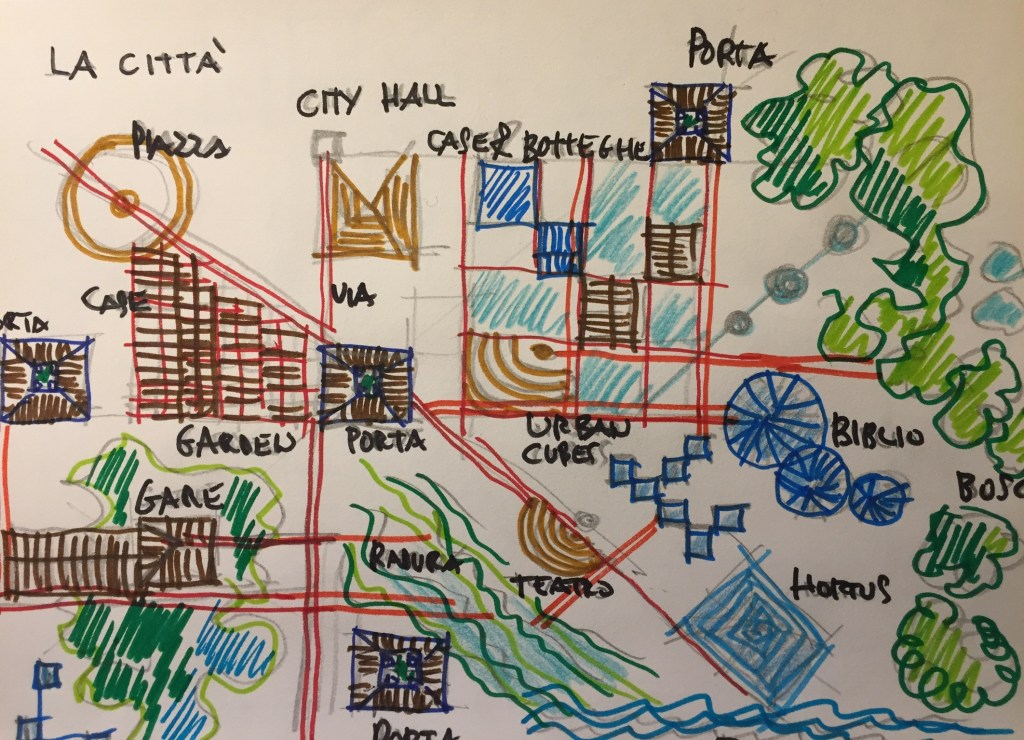 LA CITTÀ
PORTA
CITY HALL
PIAZZA
CASE & BOTTEGHE
CASE
VIA
ORTA
GARDEN
PORTA
URBAN
CUBES
BIBLIO
GARE
BOSC
RADURA
TEATRO
HORTUS
PORTA